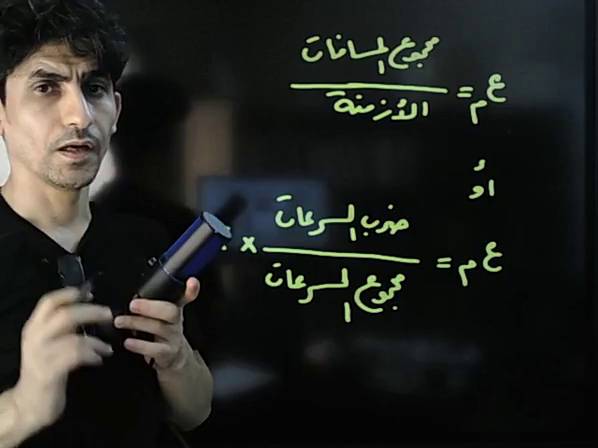 ع م = مجموع المسافات / الأزمنة
أو
ع م = ضرب السرعات / مجموع السرعات ×